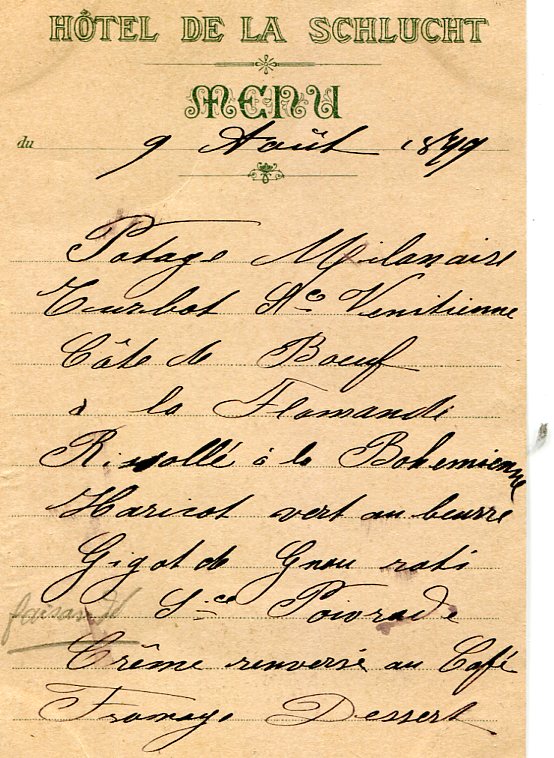 HÔTEL DE LA SCHLUCHT
MENU
du 9 Août 1899
Potage Milanaise
Turbot Sce Venitienne
Côte de Boeuf
à la Flamande
Rissollé à la Bohemienne
Haricot vert au beurre
Gigot de Gneu roti
Sce Poivrade
faisandé
Crême renversé au Café
Fromage Dessert